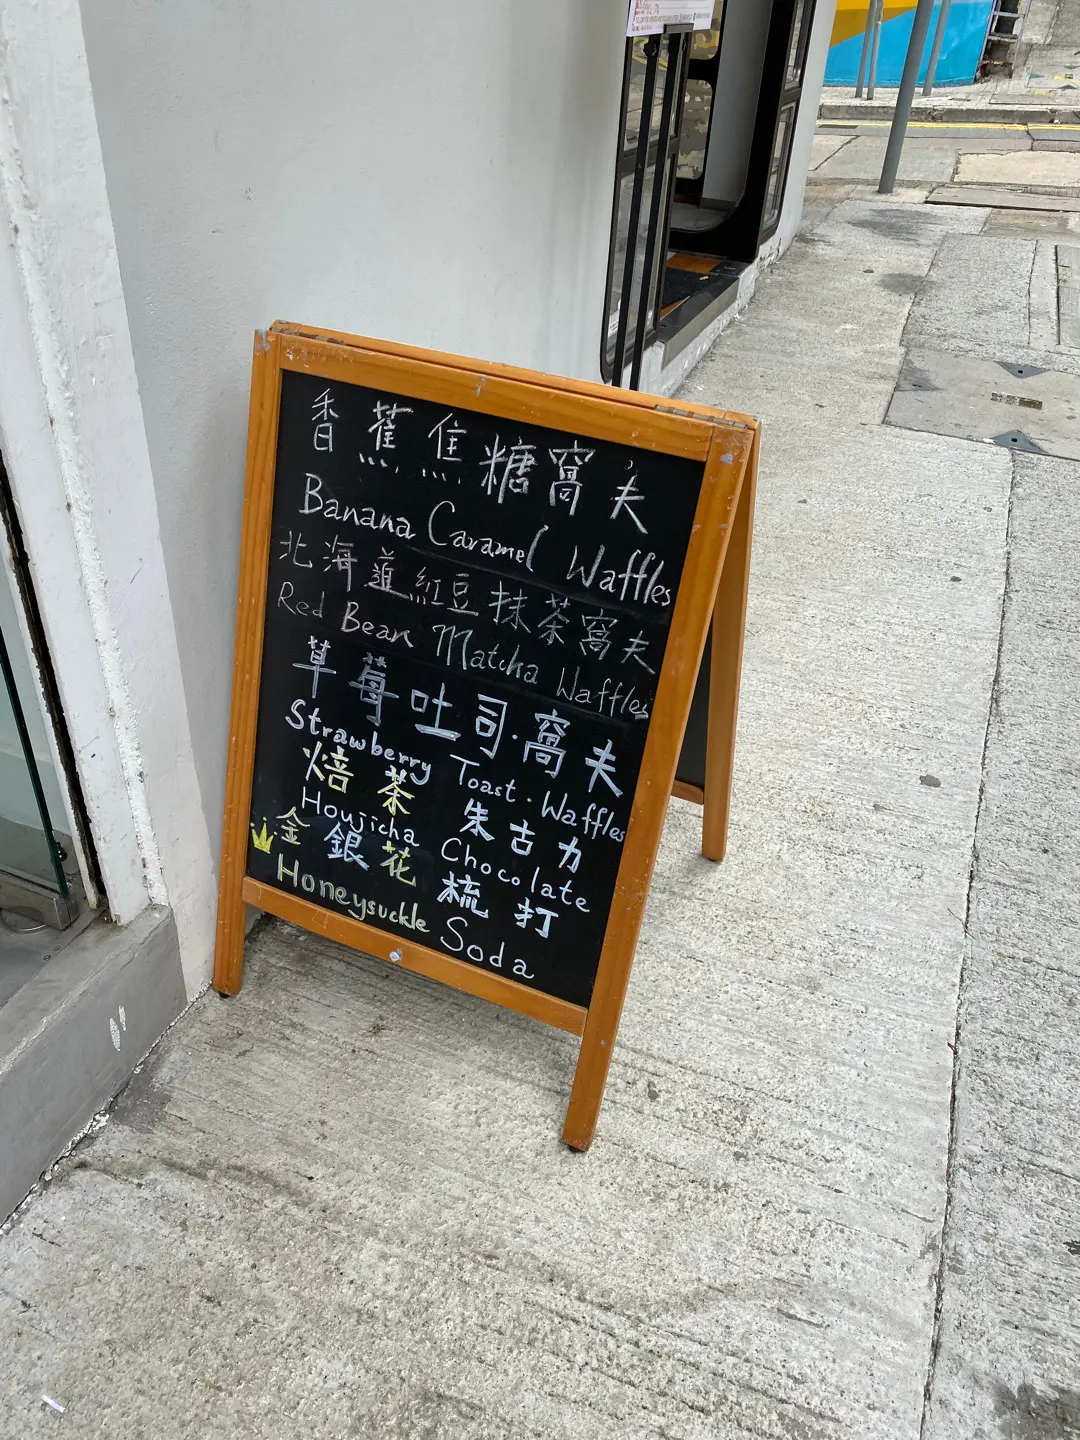 香蕉焦糖窩夫
Banana Caramel Waffles
北海道紅豆抹茶窩夫
Red Bean Matcha Waffles
草莓吐司·窩夫
Strawberry Toast·Waffles
焙茶 朱古力
Houjicha Chocolate
金銀花 梳打
Honeysuckle Soda